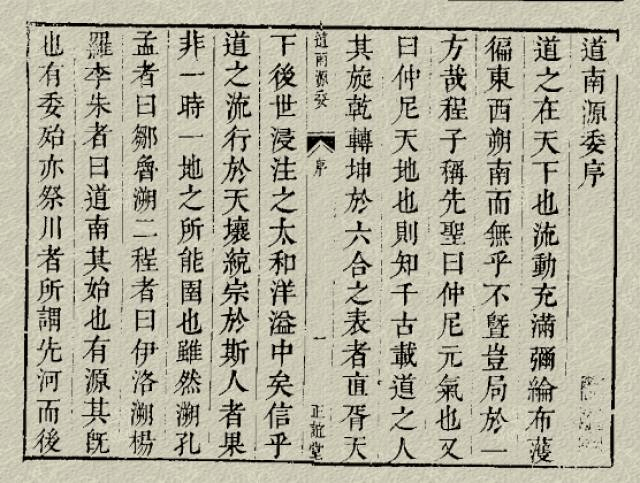 道南源委序
道之在天下也流動充滿彌綸布濩
徧東西朔南而無乎不曁豈局於一
方哉程子稱先聖曰仲尼元氣也又
曰仲尼天地也則知千古載道之人
其旋乾轉坤於六合之表者直胥天
道南源委
序
一
正誼堂
下後世浸注之太和洋溢中矣信乎
道之流行於天壤統宗於斯人者果
非一時一地之所能囿也雖然溯孔
孟者曰鄒魯溯二程者曰伊洛溯楊
羅李朱者曰道南其始也有源其旣
也有委殆亦祭川者所謂先河而後